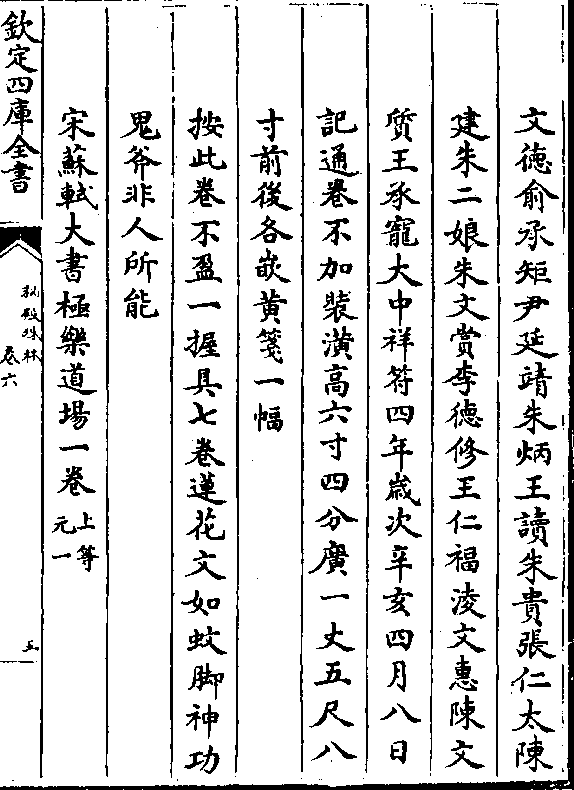 文徳俞承矩尹延靖朱炳王讀朱貴張仁太陳
建朱二娘朱文賞李徳修王仁福淩文惠陳文
質王承寵大中祥符四年歳次辛亥四月八日
記通巻不加裝潢髙六寸四分廣一丈五尺八
寸前後各嵌黄箋一幅
按此巻不盈一握具七巻蓮花文如蚊脚神功
鬼斧非人所能
宋蘇軾大書極樂道場一巻 上等元一
欽定四庫全書
秘殿珠林
巻六
五